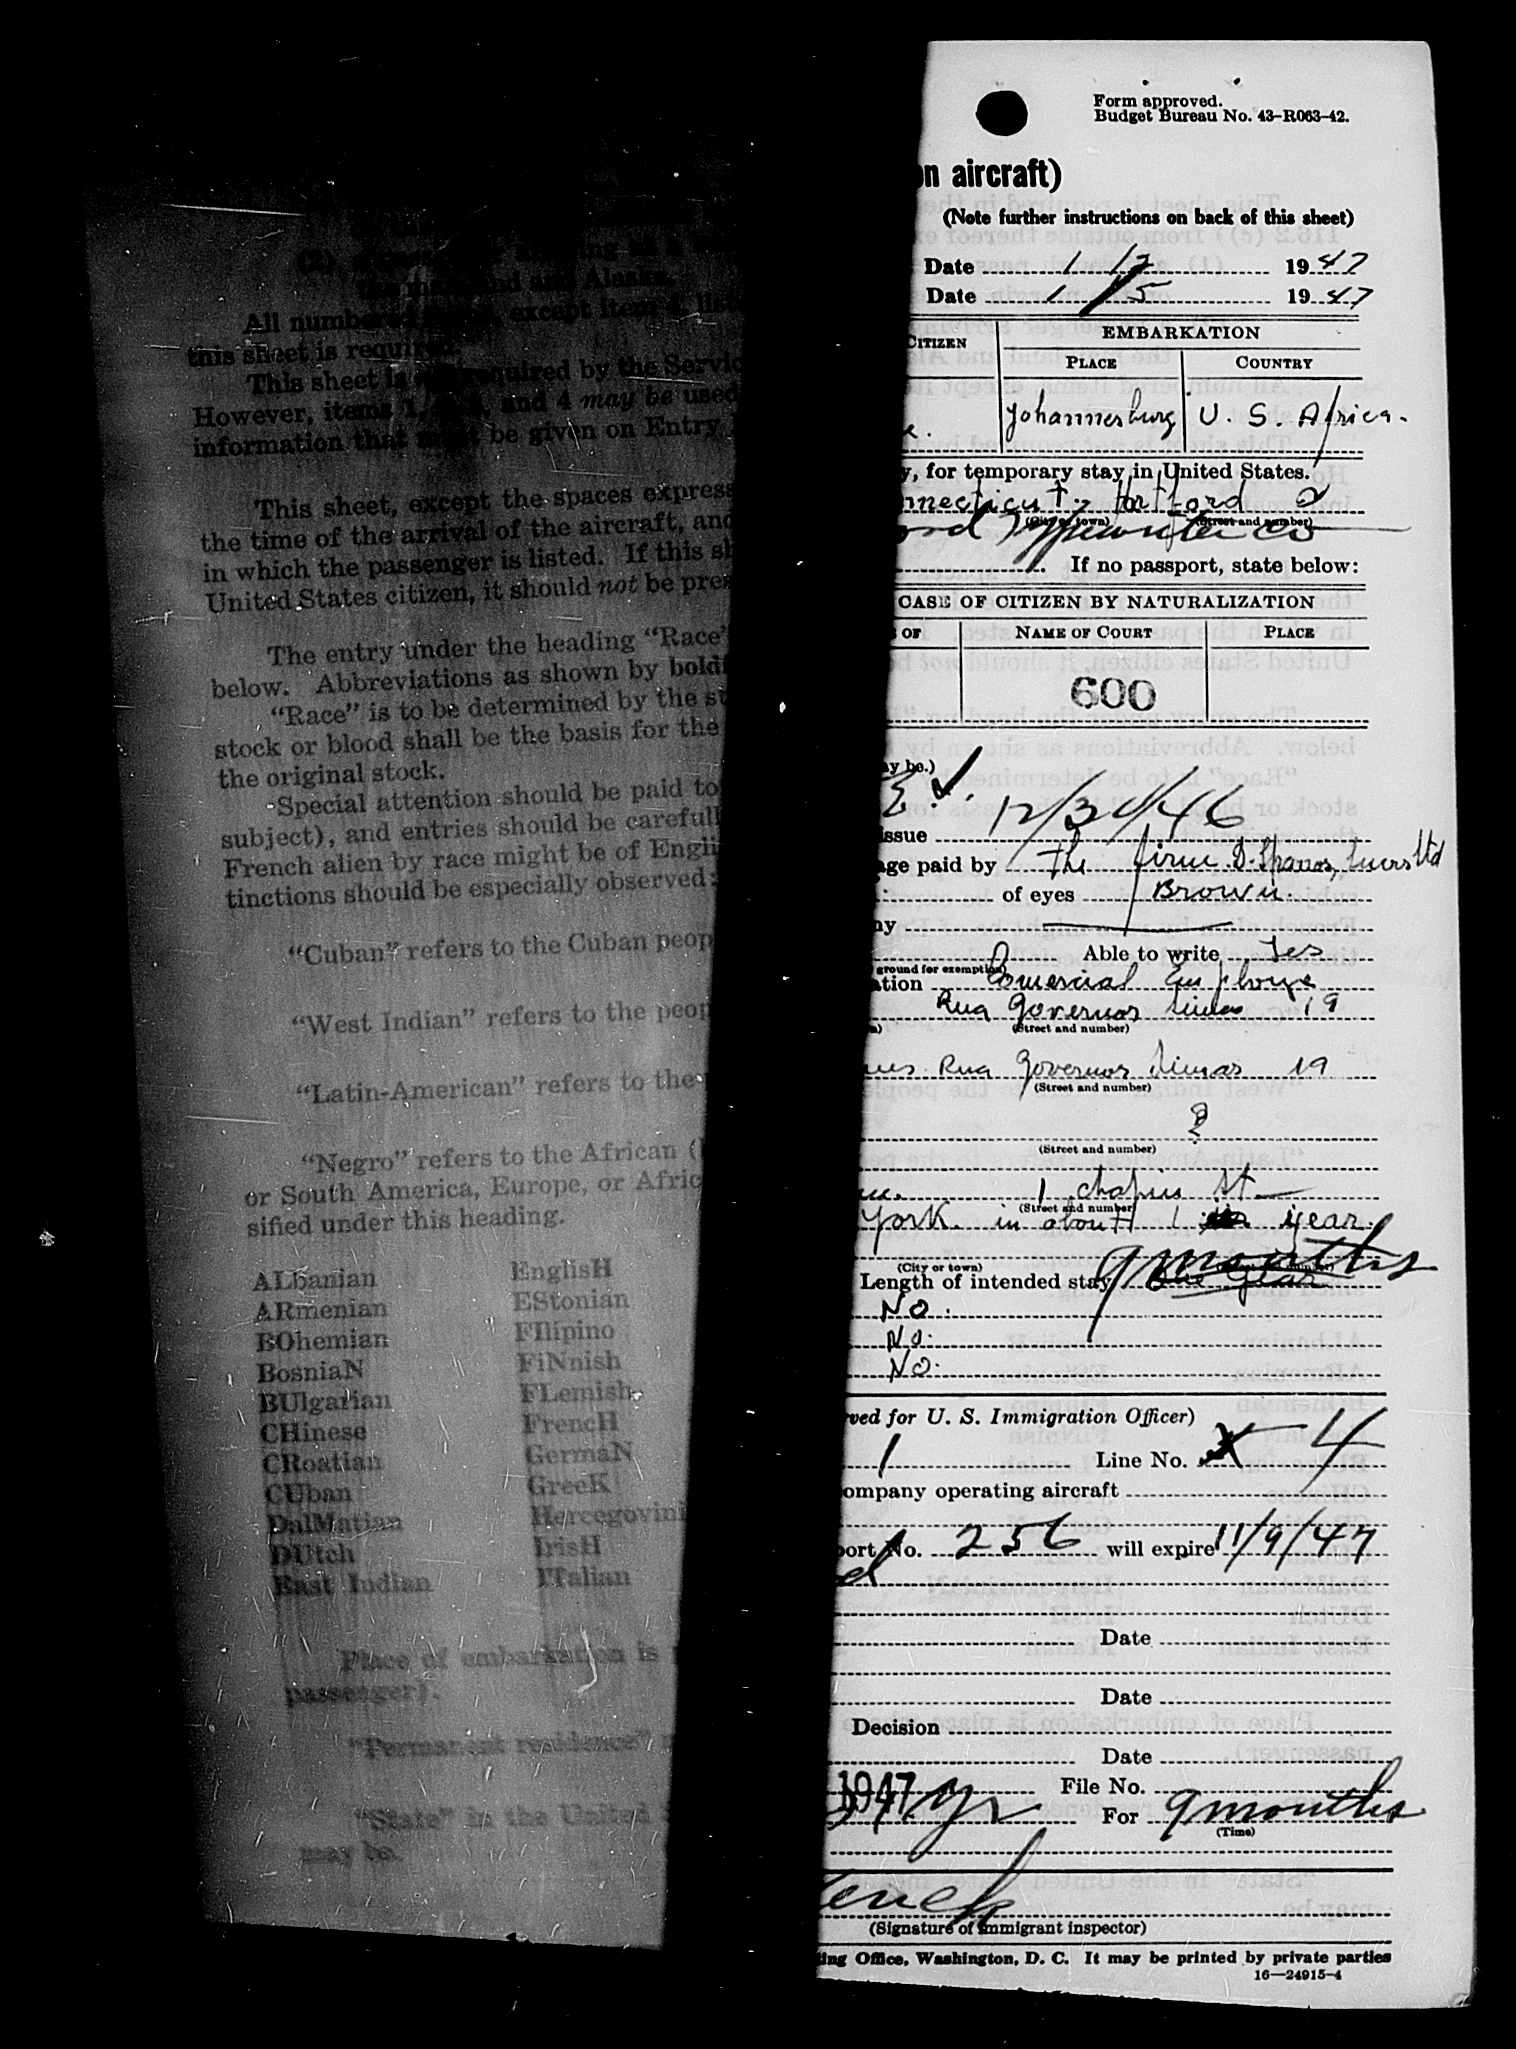 (2)
and Alaska.
All numbered except item
this sheet is required.
This sheet is required by the Servic
However, items 1, and 4 may be used
information that must be given on Entry
This sheet, except the spaces express
the time of the arrival of the aircraft, and
in which the passenger is listed. If this sh
United States citizen, it should not be pres
The entry under the heading “Race”
below. Abbreviations as shown by boldf
“Race” is to be determined by the st
stock or blood shall be the basis for the
the original stock.
Special attention should be paid to
subject), and entries should be carefull
French alien by race might be of Engli
tinctions should be especially observed:
“Cuban” refers to the Cuban peop
“West Indian” refers to the peop
“Latin-American” refers to the
“Negro” refers to the African (
or South America, Europe, or Afric
sified under this heading.
ALbanian EnglisH
ARmenian EStonian
BOhemian FIlipino
BosniaN FiNnish
BUlgarian FLemish
CHinese FrencH
CRoatian GermaN
CUban GreeK
DalMatian Hercegovini
DUtch IrisH
East Indian ITalian
Place of embarkation is
passenger).
“Permanent residence”
“State” in the United
may be.
Form approved.
Budget Bureau No. 43–R063–42.
on aircraft)
(Note further instructions on back of this sheet)
Date 1/2 1947
Date 1/5 1947
CITIZEN EMBARKATION
PLACE COUNTRY
Johannesburg U. S. Africa.
y, for temporary stay in United States.
nnecticut: Hartford
(City or town) (Street and number)
ord Typewriter Co
If no passport, state below:
CASE OF CITIZEN BY NATURALIZATION
OF NAME OF COURT PLACE
600
ay be.)
issue 12/30/46
age paid by The firm D. Spanos, Lda
of eyes Brown.
ny
Able to write Yes
ground for exemption)
ation Comercial Employe
Rua Governor Simas 19
(Street and number)
ues Rua Governor Simas 19
(Street and number)
?
(Street and number)
1 Chapin St
(Street and number)
York. in about 1 year.
(City or town)
Length of intended stay 9 months One year
No.
No.
No.
ved for U. S. Immigration Officer)
1 Line No. 4
ompany operating aircraft
port No. 256 will expire 11/9/47
Date
Date
Decision
Date
1947 File No.
For 9 months
(Time)
(Signature of immigrant inspector)
ing Office, Washington, D. C. It may be printed by private parties
16—24915-4